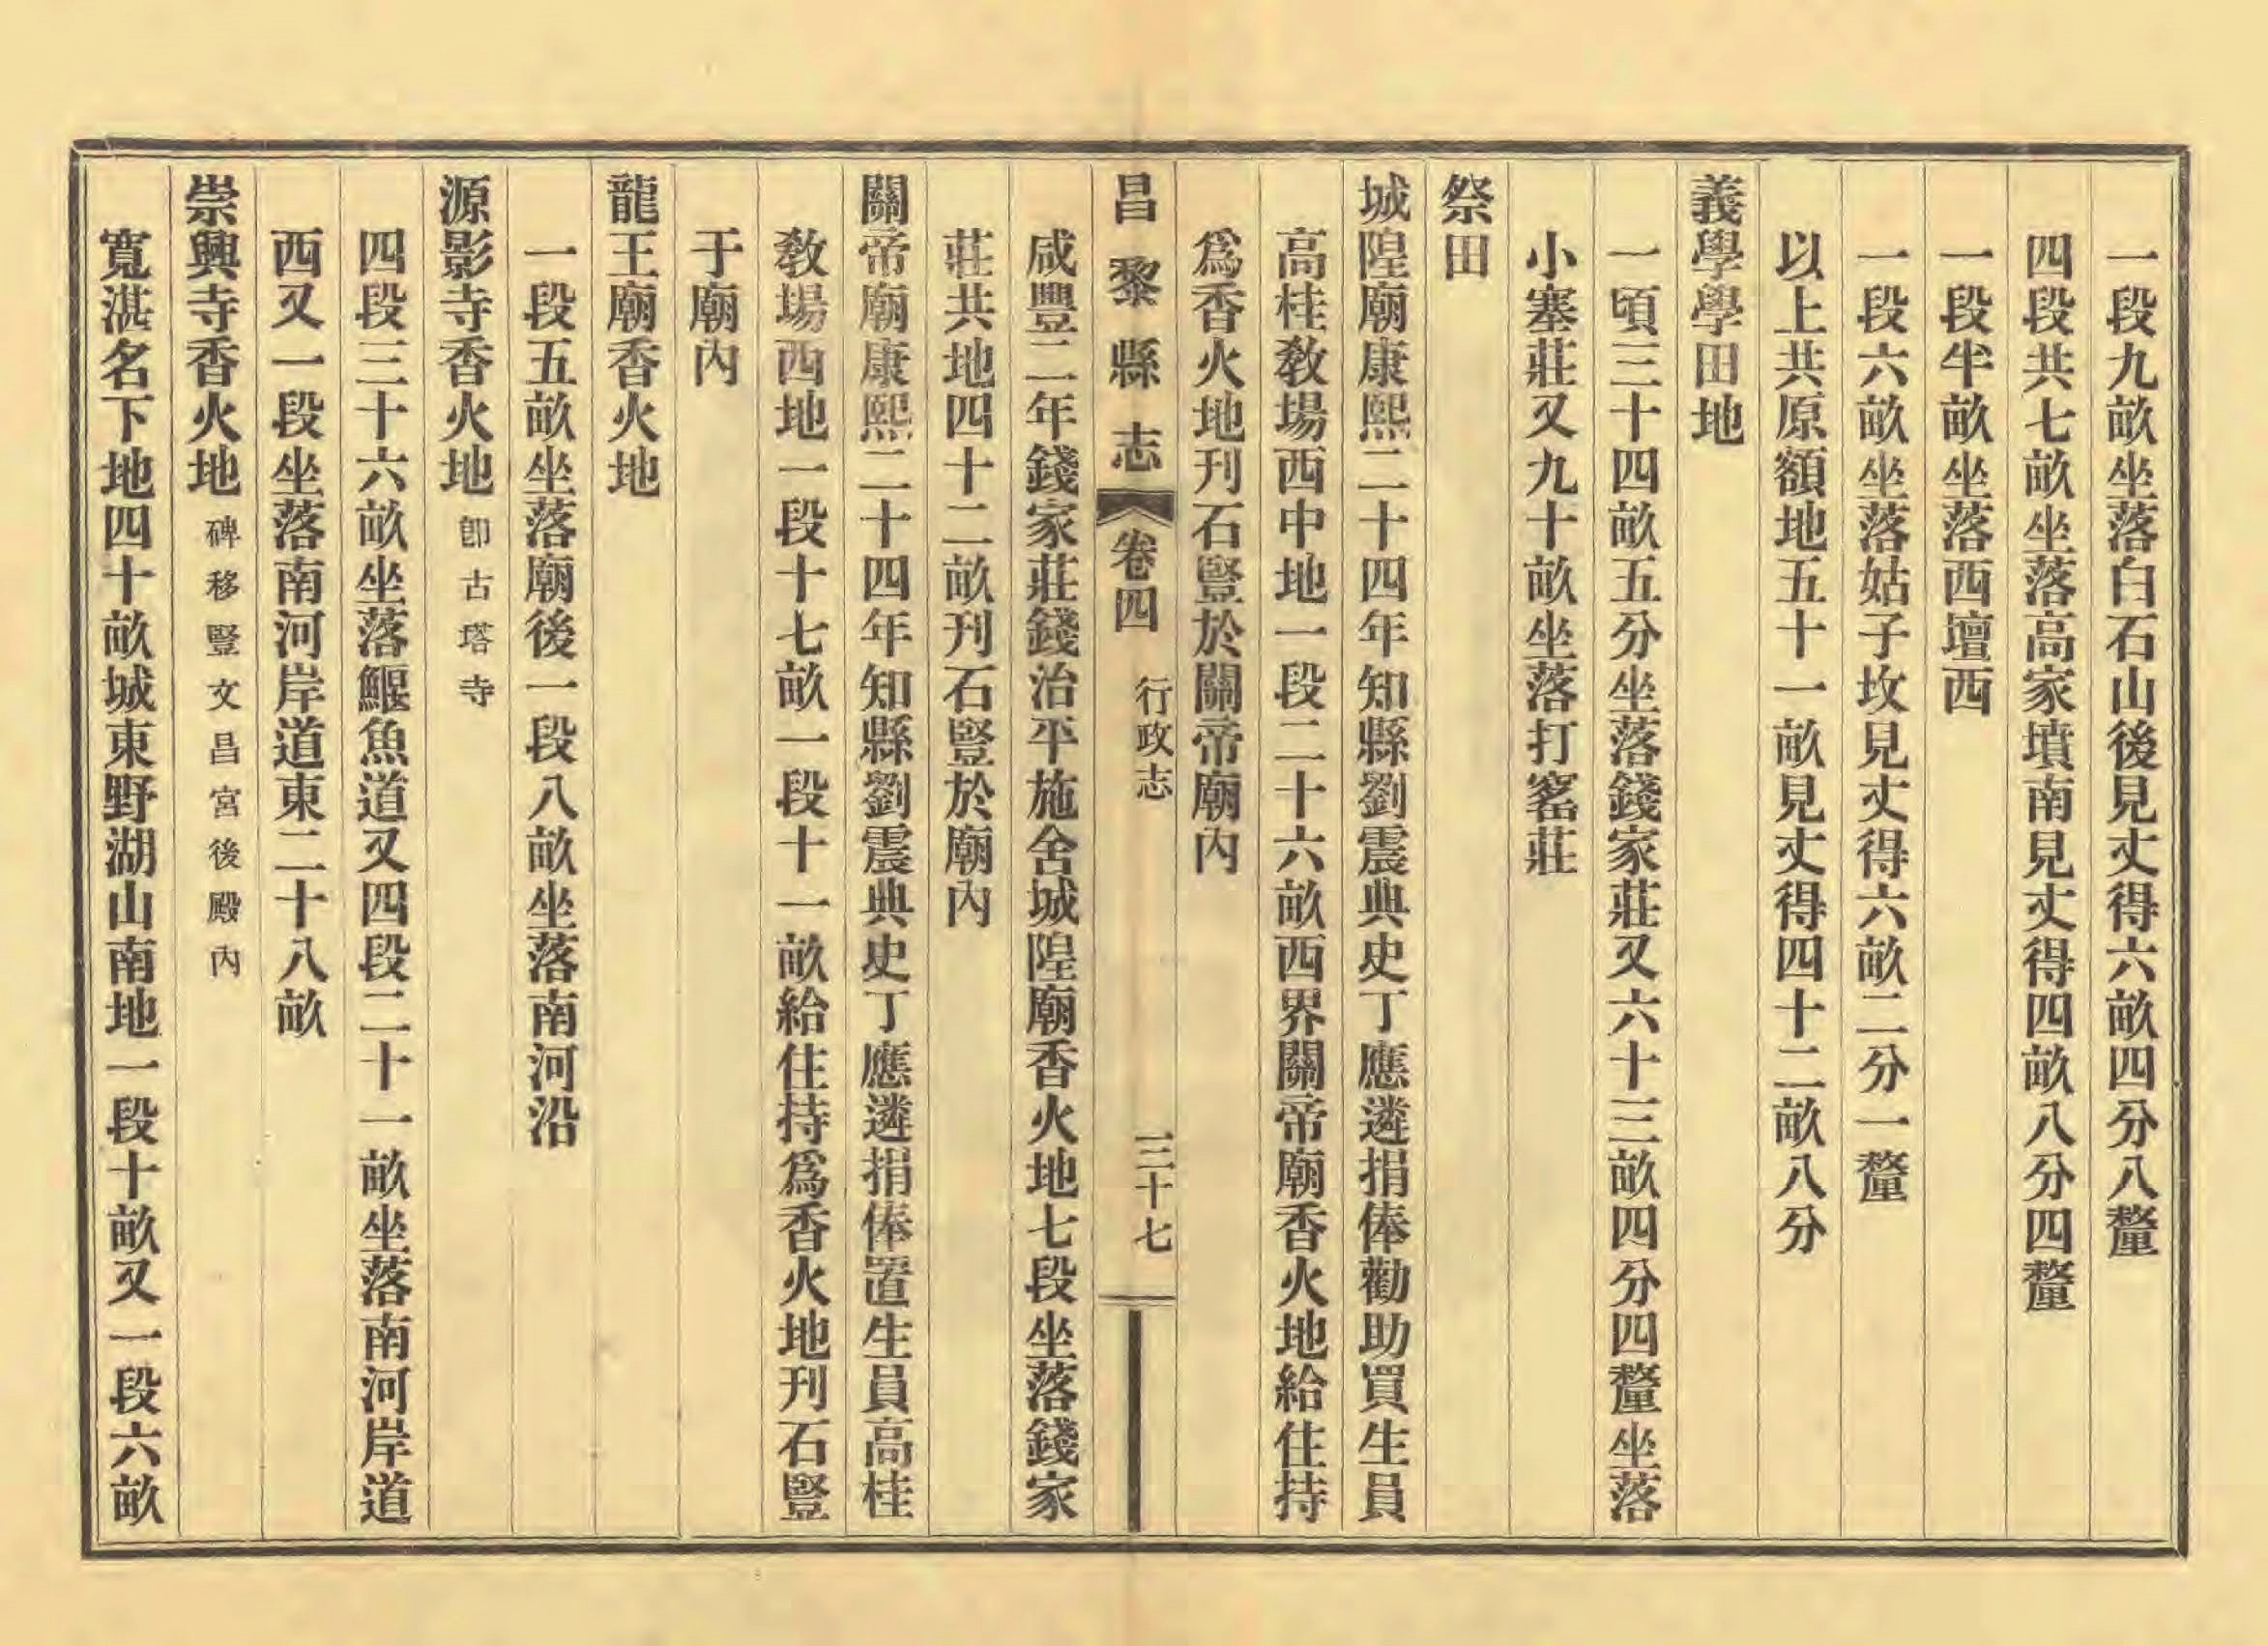 一段九畝坐落白石山後見丈得六畝四分八釐
四段共七畝坐落高家墳南見丈得四畝八分四釐
一段半畝坐落西壇西
一段六畝坐落姑子坟見丈得六畝二分一釐
以上共原額地五十一畝見丈得四十二畝八分
義學學田地
一頃三十四畝五分坐落錢家莊又六十三畝四分四釐坐落
小塞莊又九十畝坐落打窰莊
祭田
城隍廟康熙二十四年知縣劉震典史丁應遴捐俸勸助買生員
高桂敎塲西中地一段二十六畝西界關帝廟香火地給住持
爲香火地刋石豎於關帝廟內
昌黎縣志 卷四 行政志 三十七
咸豐二年錢家莊錢治平施舍城隍廟香火地七段坐落錢家
莊共地四十二畝刋石豎於廟內
關帝廟康熙二十四年知縣劉震典史丁應遴捐俸置生員高桂
敎塲西地一段十七畝一段十一畝給住持爲香火地刋石豎
于廟內
龍王廟香火地
一段五畝坐落廟後一段八畝坐落南河沿
源影寺香火地 卽古塔寺
四段三十六畝坐落鰋魚道又四段二十一畝坐落南河岸道
西又一段坐落南河岸道東二十八畝
崇興寺香火地 碑移豎文昌宮後殿內
寬湛名下地四十畝城東野湖山南地一段十畝又一段六畝